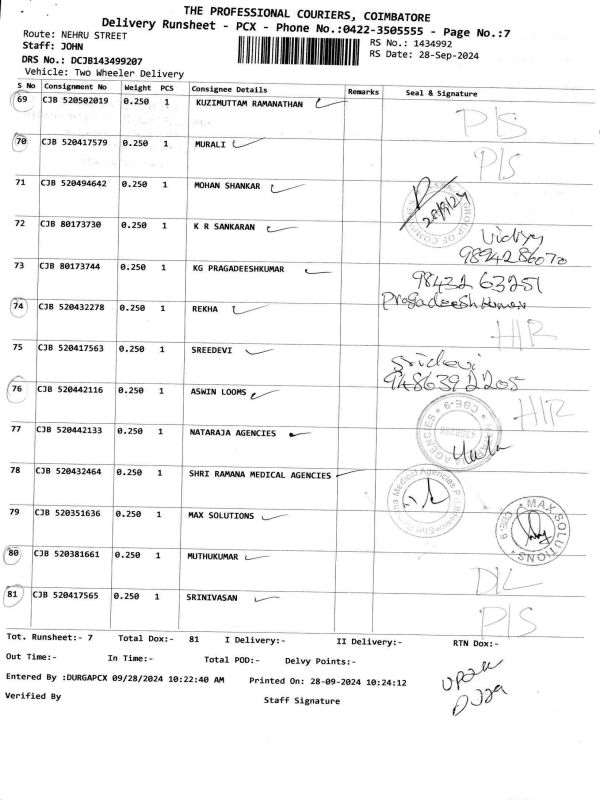 THE PROFESSIONAL COURIERS, COIMBATORE
Delivery Runsheet - PCX - Phone No.:0422-3505555 - Page No.:7
Route: NEHRU STREET
RS No.: 1434992
Staff: JOHN
RS Date: 28-Sep-2024
DRS No.: DCJB143499207
Vehicle: Two Wheeler Delivery
S No Consignment No Weight PCS Consignee Details Remarks Seal & Signature
69 CJB 520502019 0.250 1 KUZIMUTTAM RAMANATHAN P/S
70 CJB 520417579 0.250 1 MURALI P/S
71 CJB 520494642 0.250 1 MOHAN SHANKAR 28/9/24
72 CJB 80173730 0.250 1 K R SANKARAN Vidiya
9894286070
73 CJB 80173744 0.250 1 KG PRAGADEESHKUMAR 98432 63251
Pragadeeshkumar
74 CJB 520432278 0.250 1 REKHA H/R
75 CJB 520417563 0.250 1 SREEDEVI Sridevi
9486392205
76 CJB 520442116 0.250 1 ASWIN LOOMS H/R
77 CJB 520442133 0.250 1 NATARAJA AGENCIES
78 CJB 520432464 0.250 1 SHRI RAMANA MEDICAL AGENCIES
79 CJB 520351636 0.250 1 MAX SOLUTIONS MAX SOLUTIONS
80 CJB 520381661 0.250 1 MUTHUKUMAR D/L
81 CJB 520417565 0.250 1 SRINIVASAN P/S
Tot. Runsheet:- 7 Total Dox:- 81 I Delivery:- II Delivery:- RTN Dox:-
Out Time:- In Time:- Total POD:- Delvy Points:-
Entered By :DURGAPCX 09/28/2024 10:22:40 AM Printed On: 28-09-2024 10:24:12
Verified By Staff Signature